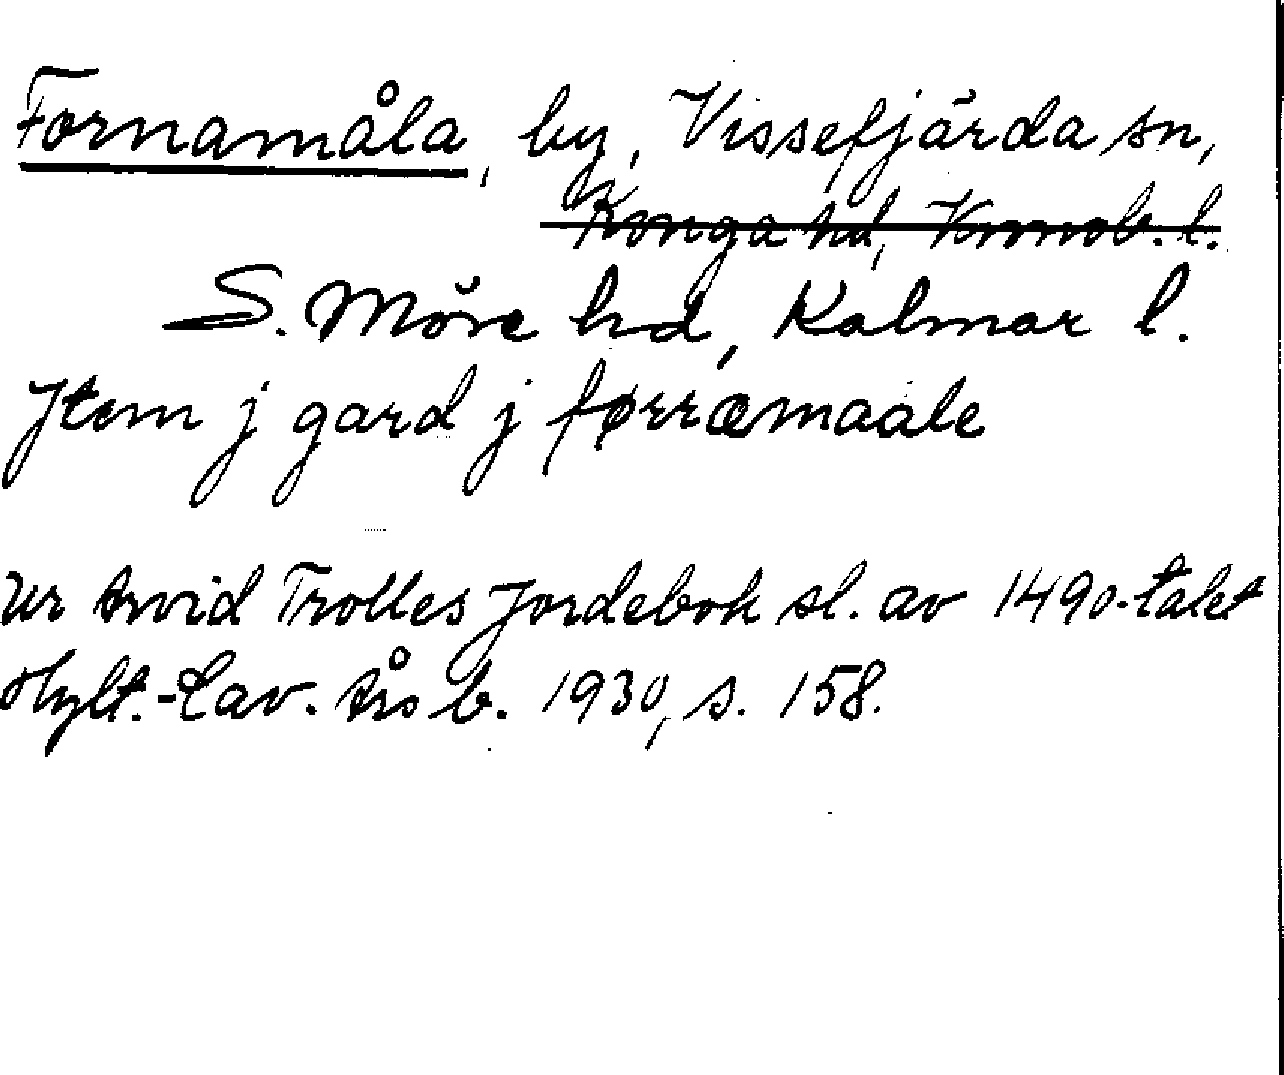 Fornamåla, by, Vissefjärda sn,
Konga hd, Kronob. l.
S. Möre hd, Kalmar l.
Jtem j gard j førræmaale
Ur Arvid Trolles Jordebok sl. av 1490-talet
Hylt.-Cav. Årsb. 1930, s. 158.